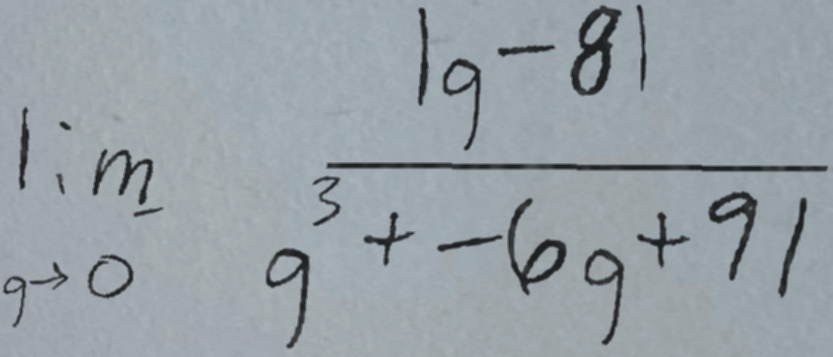 lim_{g→0} \frac{|g-8|}{g^3+-6g+91}